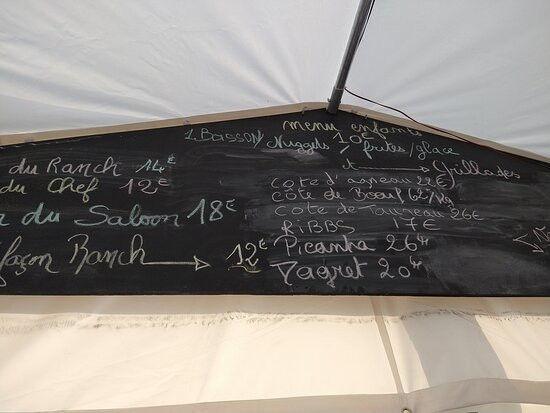 du Ranch 14€
du Chef 12€
du Saloon 18€
façon Ranch → 12€
1 BOISSON
menu enfants
10€
Nuggets / frites / glace
Grillades
Côte d'agneau 22€
Côte de Boeuf 62€/kg
Côte de Taureau 26€
RIBBS 17€
Picanha 26€
Magret 20€